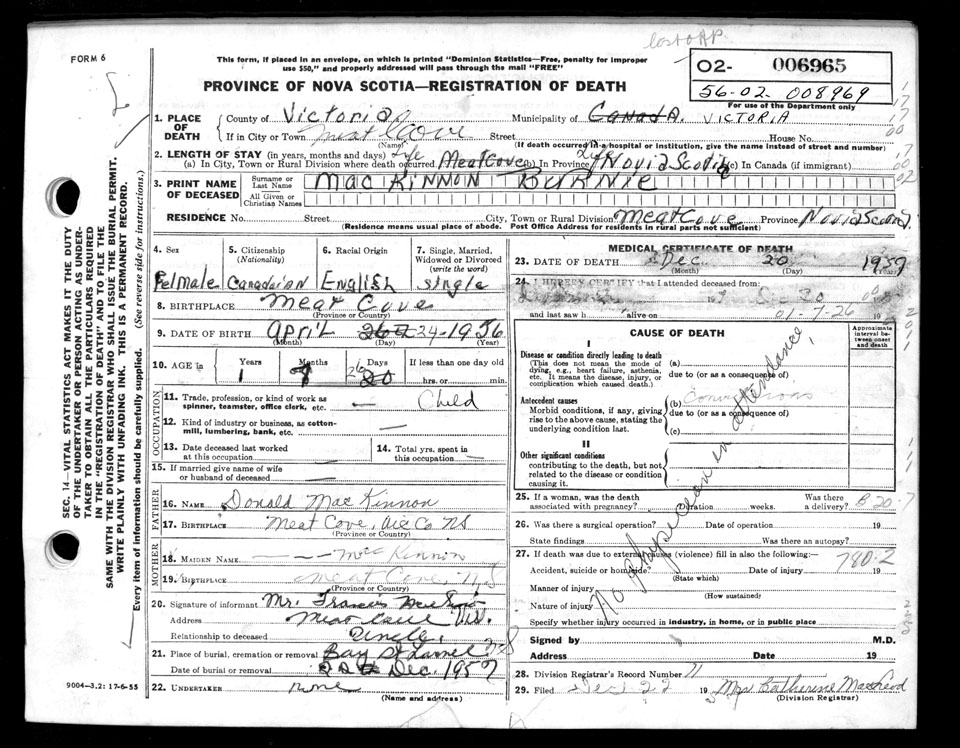 lost OAP
FORM 6
This form, if placed in an envelope, on which is printed "Dominion Statistics—Free, penalty for improper
use $50," and properly addressed will pass through the mail "FREE"
PROVINCE OF NOVA SCOTIA—REGISTRATION OF DEATH
O2- 006965
56-02- 008969
For use of the Department only
1. PLACE OF DEATH
County of Victoria Municipality of Canada. VICTORIA
If in City or Town Meat Cove Street House No.
(Name) (If death occurred in a hospital or institution, give the name instead of street and number)
2. LENGTH OF STAY (in years, months and days) Life Life
(a) In City, Town or Rural Division where death occurred Meat Cove (b) In Province Novia Scotia (c) In Canada (if immigrant)
3. PRINT NAME OF DECEASED
Surname or Last Name Mac Kinnon Burnie
All Given or Christian Names
RESIDENCE No. Street City, Town or Rural Division Meat Cove Province Novia Scotia
(Residence means usual place of abode. Post Office Address for residents in rural parts not sufficient)
4. Sex 5. Citizenship (Nationality) 6. Racial Origin 7. Single, Married, Widowed or Divorced (write the word)
Felmale Canadaian English Single
8. BIRTHPLACE Meat Cove
(Province or Country)
9. DATE OF BIRTH April 24-1956
(Month) (Day) (Year)
10. AGE in Years Months Days If less than one day old
1 26 20 hrs. or min.
OCCUPATION
11. Trade, profession, or kind of work as spinner, teamster, office clerk, etc. — Child
12. Kind of industry or business, as cotton-mill, lumbering, bank, etc. —
13. Date deceased last worked at this occupation — 14. Total yrs. spent in this occupation —
15. If married give name of wife or husband of deceased —
FATHER
16. NAME Donald Mac Kinnon
17. BIRTHPLACE Meat Cove, Vic Co NS
(Province or Country)
MOTHER
18. MAIDEN NAME — — — Mac Kinnon
19. BIRTHPLACE Meat Cove, NS
(Province or Country)
20. Signature of informant Mr. Francis
Address Meat Cove N.S.
Relationship to deceased Uncle,
21. Place of burial, cremation or removal Bay St NS
Date of burial or removal Dec. 1957
22. UNDERTAKER none
(Name and address)
9004—3,2: 17-6-55
SEC. 14—VITAL STATISTICS ACT MAKES IT THE DUTY
OF THE UNDERTAKER OR PERSON ACTING AS UNDER-
TAKER TO OBTAIN ALL THE PARTICULARS REQUIRED
IN THE "REGISTRATION OF DEATH" AND TO FILE THE
SAME WITH THE DIVISION REGISTRAR WHO SHALL ISSUE THE BURIAL PERMIT.
WRITE PLAINLY WITH UNFADING INK. THIS IS A PERMANENT RECORD.
Every item of information should be carefully supplied. (See reverse side for instructions.)
MEDICAL CERTIFICATE OF DEATH
23. DATE OF DEATH Dec 20 1957
(Month) (Day) (Year)
24. I HEREBY CERTIFY that I attended deceased from:
20
and last saw h alive on 01-7-26 19
CAUSE OF DEATH
Approximate interval between onset and death
I
Disease or condition directly leading to death
(This does not mean the mode of dying, e.g., heart failure, asthenia, etc. It means the disease, injury, or complication which caused death.)
(a)
due to (or as a consequence of)
Antecedent causes
Morbid conditions, if any, giving rise to the above cause, stating the underlying condition last.
(b) Convulsions
due to (or as a consequence of)
(c)
II
Other significant conditions
contributing to the death, but not related to the disease or condition causing it.
No physician in attendance,
25. If a woman, was the death associated with pregnancy? Duration weeks. Was there a delivery? B-20-7
26. Was there a surgical operation? Date of operation 19
State findings Was there an autopsy?
27. If death was due to external causes (violence) fill in also the following:—
780-2
Accident, suicide or homicide? Date of injury 19
(State which)
Manner of injury
(How sustained)
Nature of injury
Specify whether injury occurred in industry, in home, or in public place
Signed by M.D.
Address Date 19
28. Division Registrar's Record Number 11
29. Filed Dec 22 19 Mrs Catherine MacLeod
(Division Registrar)